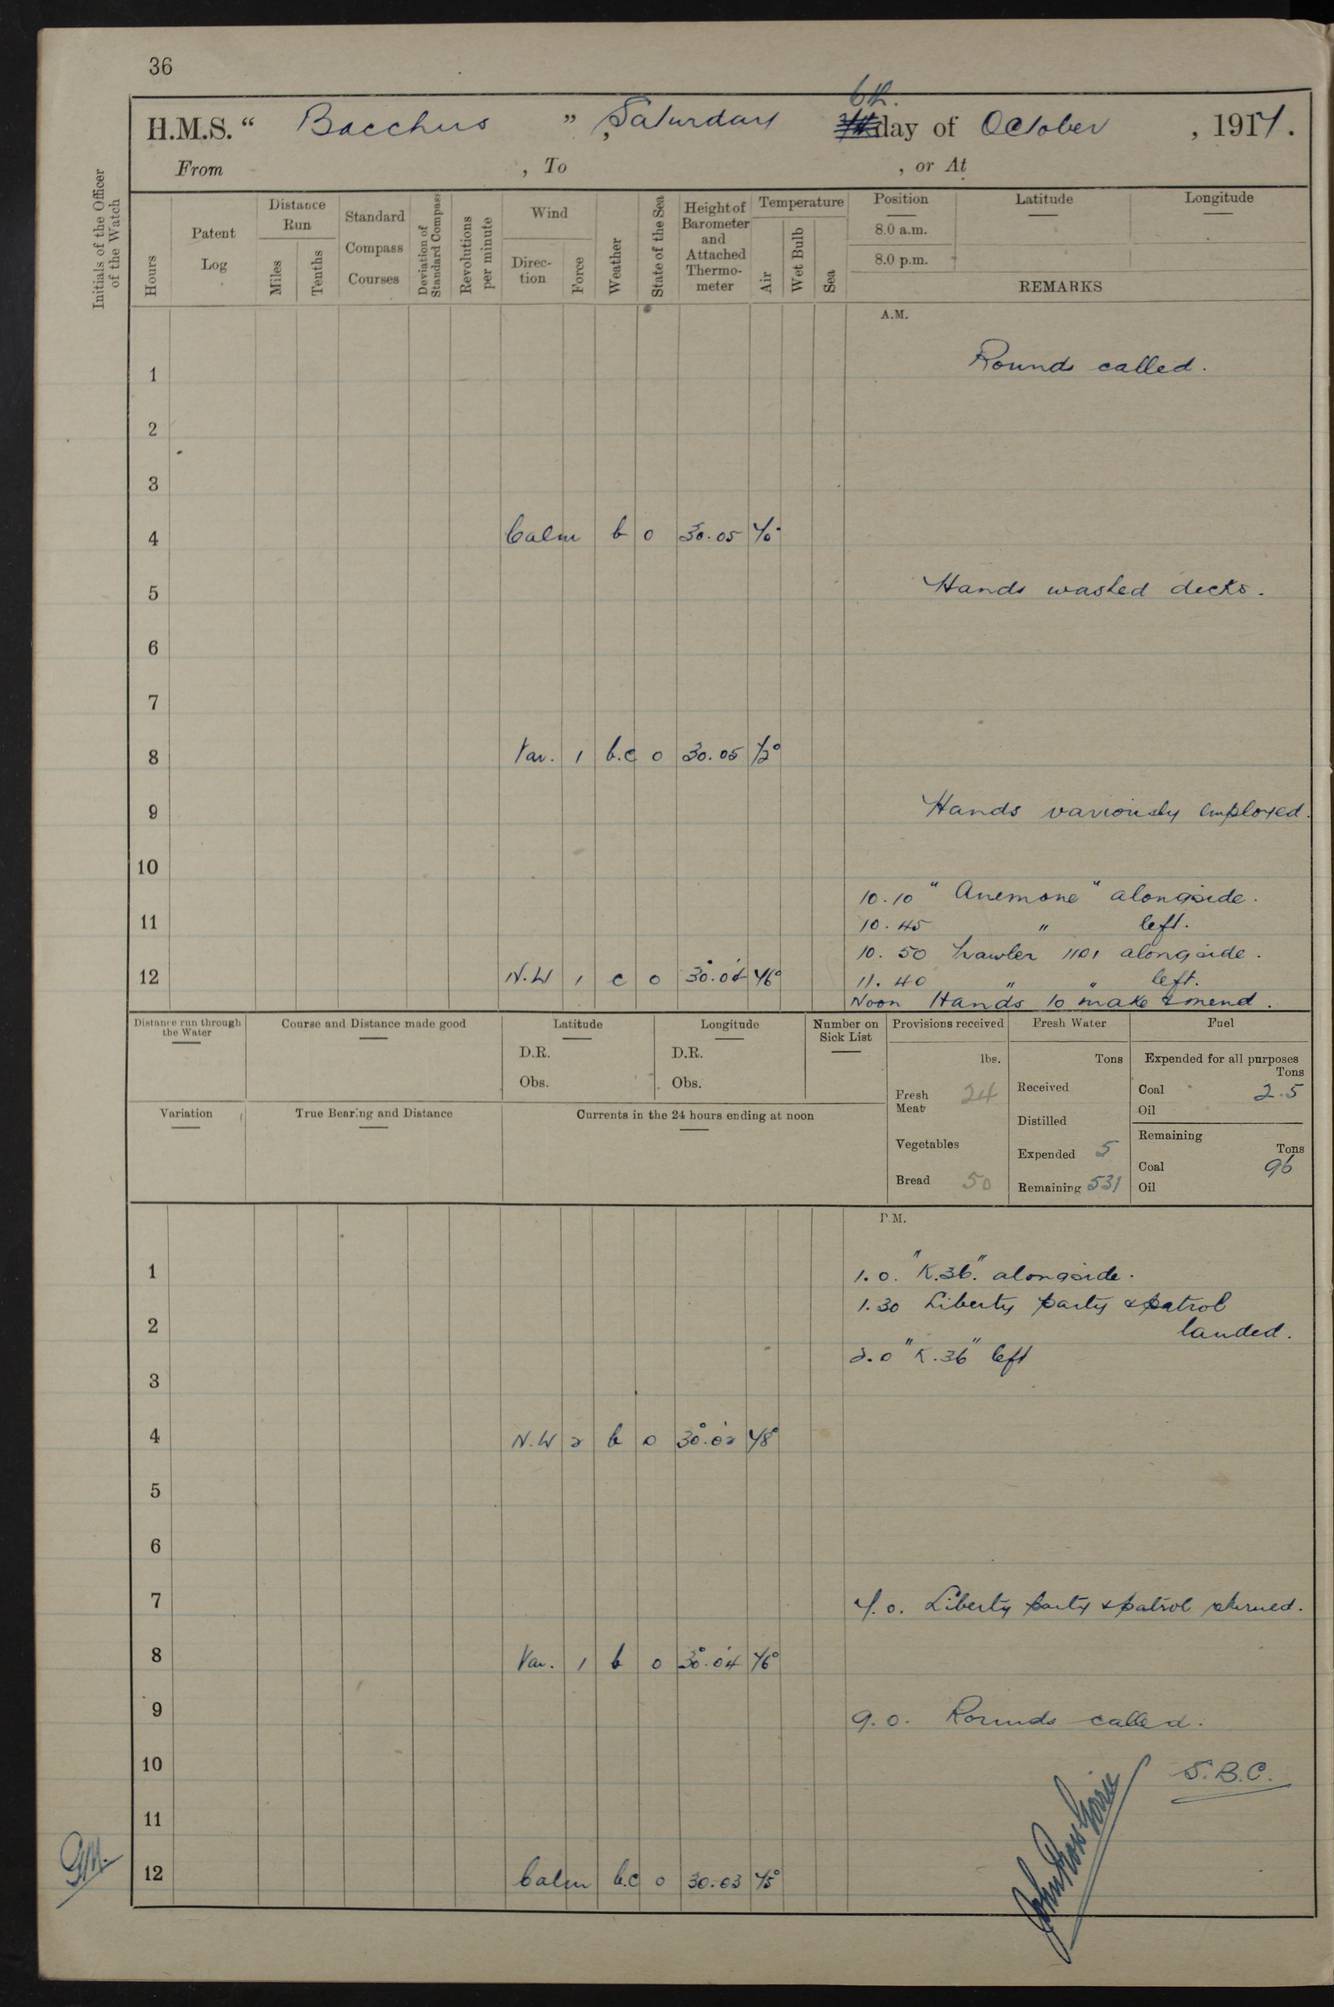 36
H.M.S. “ Bacchus ” , Saturday 6th. day of October , 1917.
From , To , or At
Initials of the Officer of the Watch
Hours
Patent Log
Distance Run
Miles
Tenths
Standard Compass Courses
Deviation of Standard Compass
Revolutions per minute
Wind
Direc-tion
Force
Weather
State of the Sea
Height of Barometer and Attached Thermo-meter
Temperature
Air
Wet Bulb
Sea
Position
8.0 a.m.
8.0 p.m.
Latitude
Longitude
REMARKS
A.M.
1 Rounds called.
2
3
4 Calm b 0 30.05 40°
5 Hands washed decks.
6
7
8 Var. 1 b.c 0 30.05 42°
9 Hands variously employed.
10
10.10 " Anemone " alongside.
11 10.45 " left.
10.50 Trawler 1101 alongside.
12 N.W 1 c 0 46° 11.40 " " left.
Noon Hands to make & mend.
Distance run through the Water
Course and Distance made good
Latitude
D.R.
Obs.
Longitude
D.R.
Obs.
Number on Sick List
Provisions received
lbs.
Fresh Meat 24
Vegetables
Bread 50
Fresh Water
Tons
Received
Distilled
Expended 5
Remaining 531
Fuel
Expended for all purposes
Tons
Coal 2.5
Oil
Remaining
Tons
Coal 96
Oil
Variation
True Bearing and Distance
Currents in the 24 hours ending at noon
P.M.
1 1.0. "K.36." alongside.
1.30 Liberty party & patrol
2 landed.
2.0 "K.36" left
3
4 N.W 2 b 0 30.02 48°
5
6
7 7.0. Liberty party & patrol returned.
8 Var. 1 b 0 30.04 46°
9 9.0. Rounds called.
10 S.B.C.
11
12 Calm b.c 0 30.03 45°